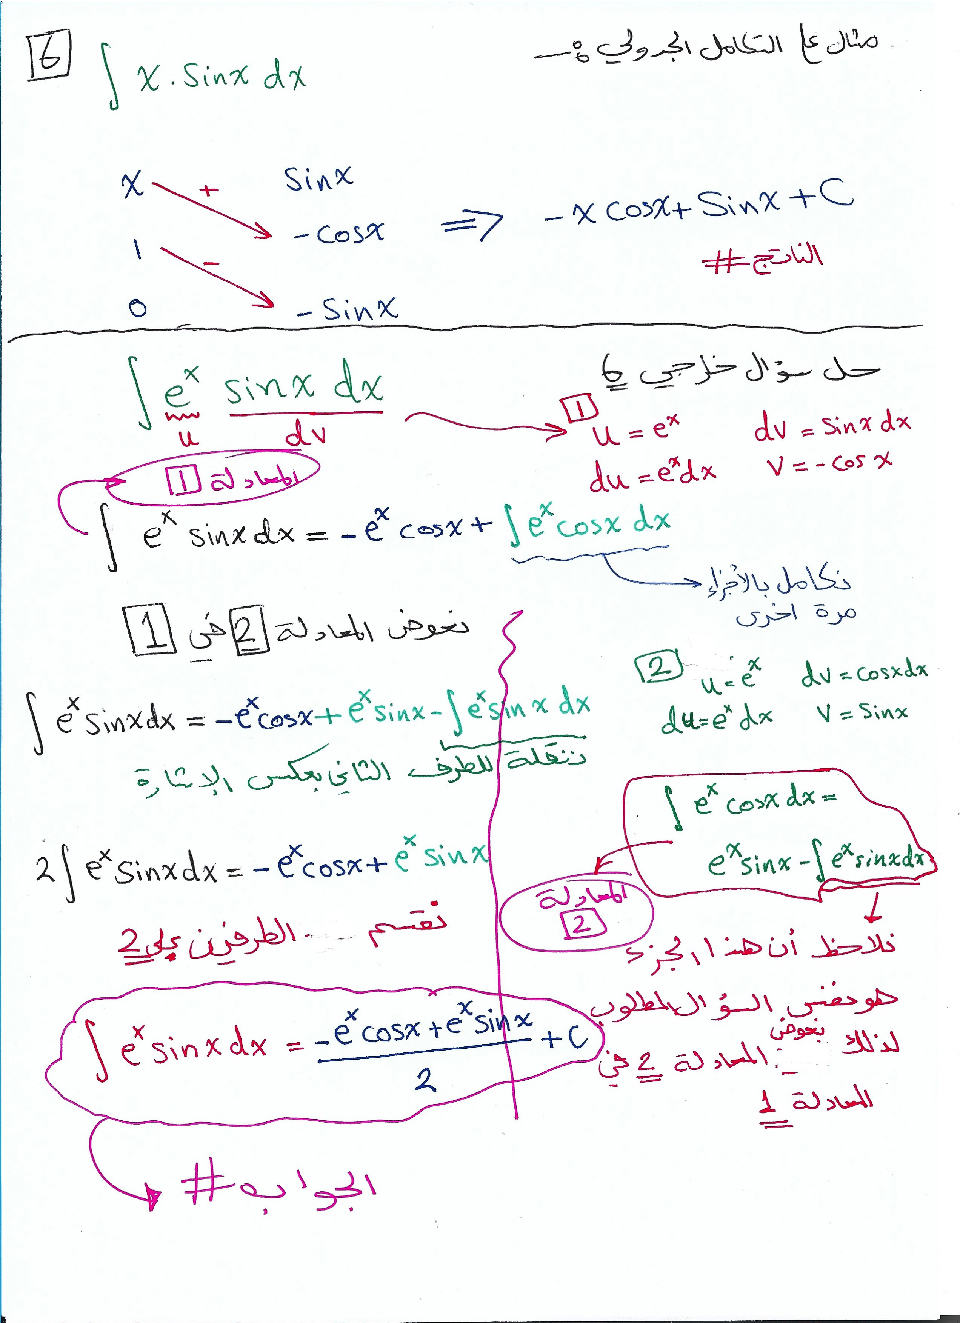 6
مثال على التكامل الجدولي :-
∫ x . sinx dx
x + sinx
1 - -cosx ⇒ -x cosx + sinx + C
الناتج #
0 -sinx
حل سؤال خارجي 6
∫ e^x sinx dx
u dv
1
u = e^x dv = sinx dx
du = e^x dx v = -cos x
المعادلة 1
∫ e^x sinx dx = -e^x cosx + ∫ e^x cosx dx
نكامل بالأجزاء
مرة اخرى
نعوض المعادلة 2 في 1
2
u = e^x dv = cosx dx
du = e^x dx v = sinx
∫ e^x sinx dx = -e^x cosx + e^x sinx - ∫ e^x sin x dx
ننقلة للطرف الثاني بعكس الإشارة
∫ e^x cosx dx =
e^x sinx - ∫ e^x sinx dx
المعادلة
2
2 ∫ e^x sinx dx = -e^x cosx + e^x sinx
نقسم الطرفين على 2
نلاحظ أن هذا الجزء
هو نفس السؤال المطلوب
لذلك نعوض المعادلة 2 في
المعادلة 1
∫ e^x sinx dx = (-e^x cosx + e^x sinx) / 2 + C
الجواب #